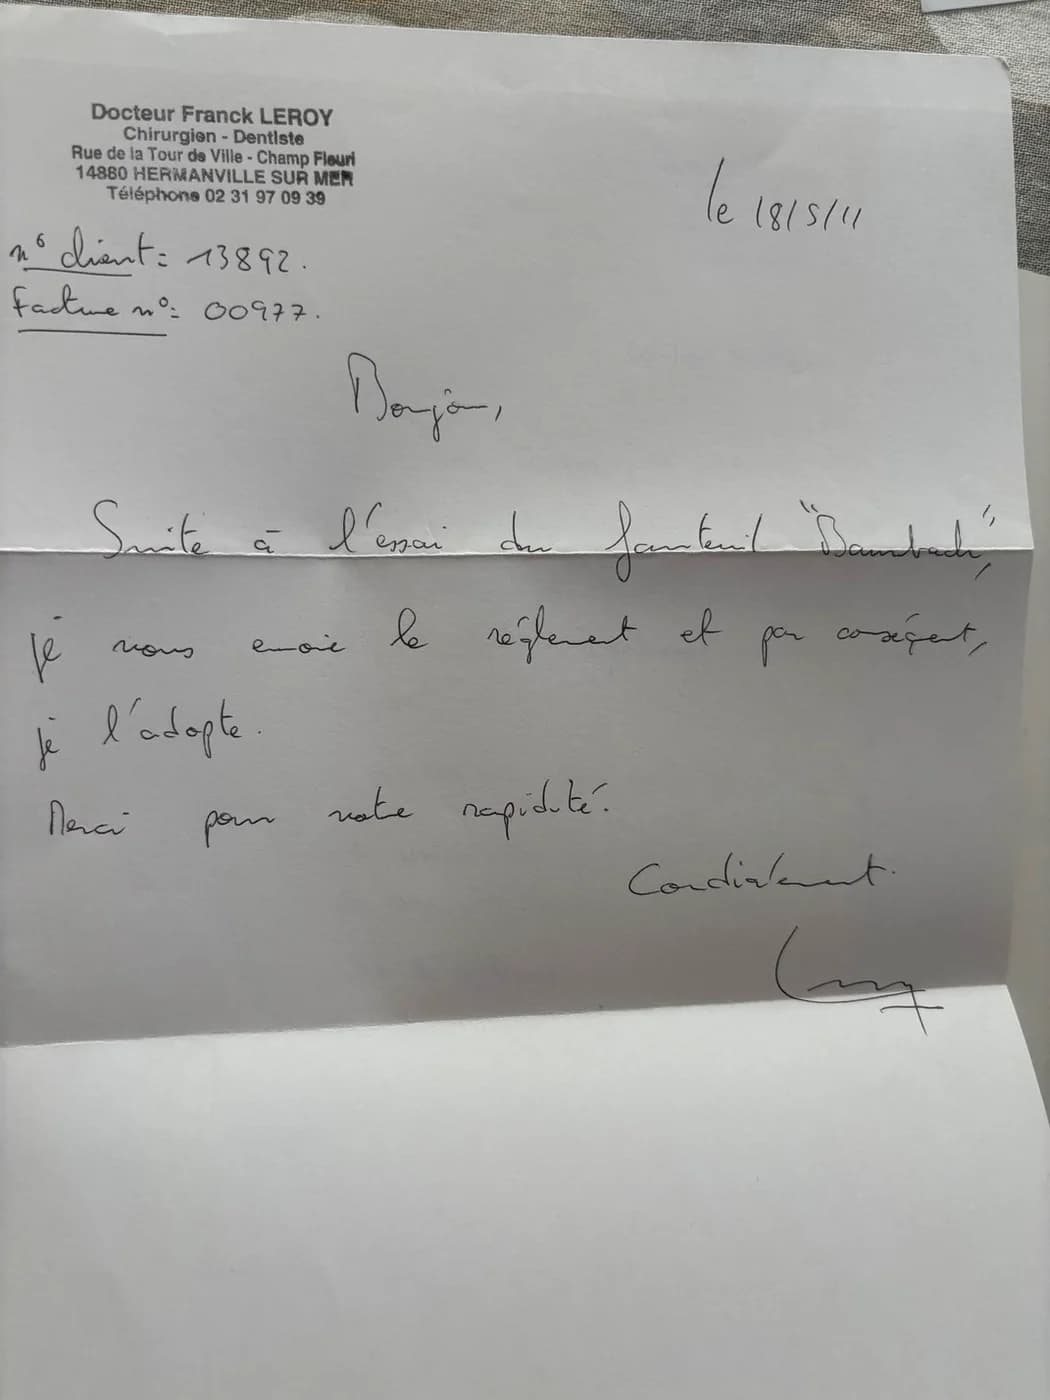 Docteur Franck LEROY
Chirurgien - Dentiste
Rue de la Tour de Ville - Champ Fleuri
14880 HERMANVILLE SUR MER
Téléphone 02 31 97 09 39
le 18/5/11
n° client : 13892.
Facture n° : 00977.
Bonjour,
Suite à l'essai du fauteuil "Bambach",
je vous envoie le réglement et par conséquent,
je l'adopte.
Merci pour votre rapidité.
Cordialement.